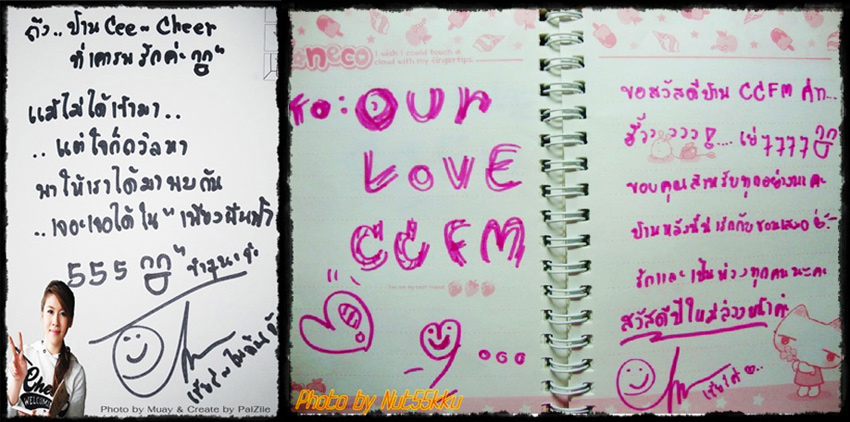 ถึง.. บ้าน Cee ~ Cheer
ที่เคารพ รักค่ะ
แม้ไม่ได้เข้ามา..
.. แต่ใจก็ถวิลหา
พาให้เราได้มาพบกัน
.. เจอะเจอได้ใน "เพียงผืนฟ้า"
555
Cheer
WELCOME
Photo by Muay & Create by PalZile
neco
I wish I could touch a
cloud with my fingertips.
To: OUR
LOVE
CCFM
Photo by Nut55kku
ขอสวัสดีบ้าน CCFM ค่ะ...
7777
ขอบคุณสำหรับทุกอย่างนะคะ
บ้านหลังนี้น่ารักกับชอบเสมอ
รักและเป็นห่วงทุกคนนะคะ
สวัสดีปีใหม่ล่วงหน้าค่ะ